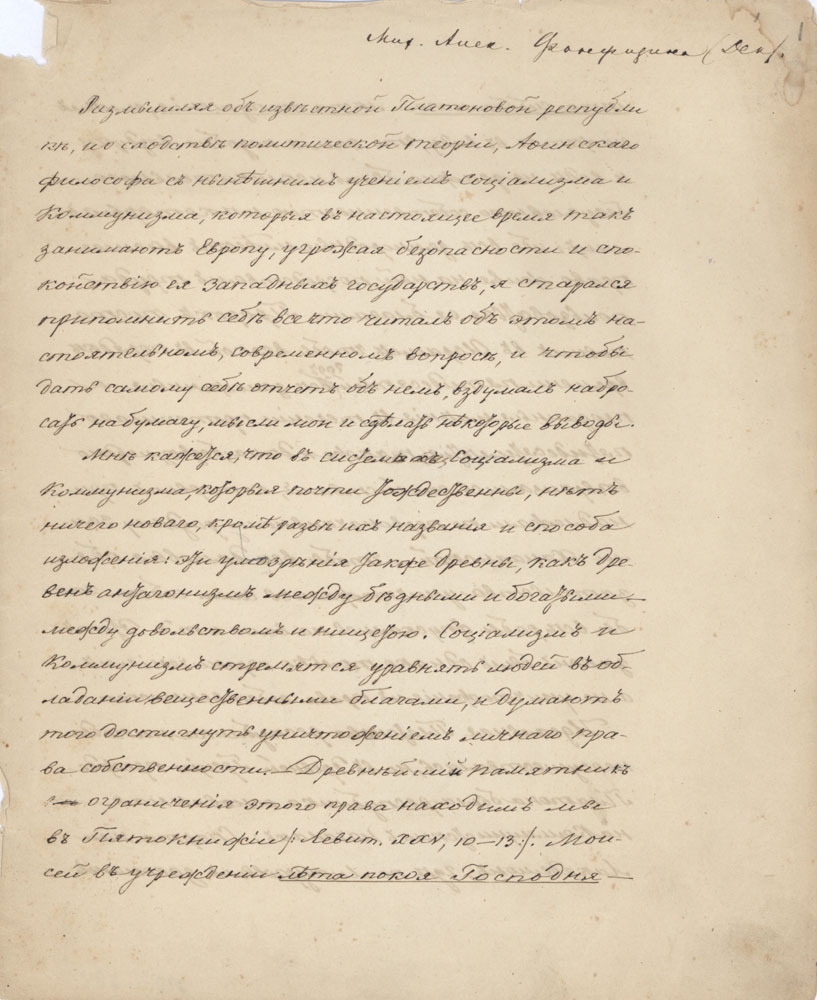 Мих. Алек. Фонфизина (Дек).
Размышляя объ извѣстной Платоновой республи
кѣ, и о сходствѣ политической теоріи, Аѳинскаго
философа съ нынѣшнимъ ученіемъ Соціализма и
Коммунизма, которыя въ настоящее время такъ
занимаютъ Европу, угрожая безопасности и спо-
койствію ея западныхъ государствъ, я старался
припомнить себѣ все что читалъ объ этомъ на-
стоятельномъ, современномъ вопросѣ, и чтобы
дать самому себѣ отчетъ объ немъ, вздумалъ набро-
сать на бумагу, мысли мои и сдѣлать нѣкоторые выводы.
Мнѣ кажется, что въ системахъ Соціализма и
Коммунизма, которыя почти тождественны, нѣтъ
ничего новаго, кромѣ развѣ ихъ названія и способа
изложенія: эти умозрѣнія также древни, какъ дре-
венъ антагонизмъ между бѣдными и богатыми —
между довольствомъ и нищетою. Соціализмъ и
Коммунизмъ стремятся уравнять людей въ об-
ладаніи вещественными благами, и думаютъ
того достигнуть уничтоженіемъ личнаго пра-
ва собственности. — Древнѣйшій памятникъ
ограниченія этого права находимъ мы
въ Пятокнижіи /: Левит. XXV, 10—13 :/. Мои-
сей въ учрежденіи лѣта покоя Господня —